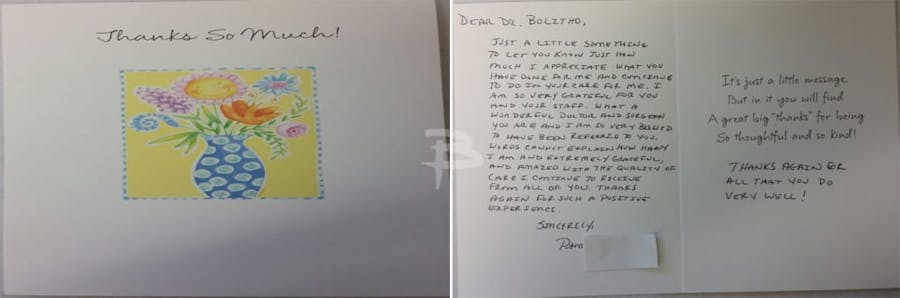 Thanks So Much!
DEAR DR. BOLITHO,
JUST A LITTLE SOMETHING
TO LET YOU KNOW JUST HOW
MUCH I APPRECIATE WHAT YOU
HAVE DONE FOR ME AND CONTINUE
TO DO IN YOUR CARE FOR ME. I
AM SO VERY GRATEFUL FOR YOU
AND YOUR STAFF. WHAT A
WONDERFUL DOCTOR AND SURGEON
YOU ARE AND I AM SO VERY BLESSED
TO HAVE BEEN REFERRED TO YOU.
WORDS CANNOT EXPLAIN HOW HAPPY
I AM AND EXTREMELY GRATEFUL,
AND AMAZED WITH THE QUALITY OF
CARE I CONTINUE TO RECEIVE
FROM ALL OF YOU. THANKS
AGAIN FOR SUCH A POSITIVE
EXPERIENCE.
SINCERELY,
Pam
It's just a little message
But in it you will find
A great big "thanks" for being
So thoughtful and so kind!
THANKS AGAIN FOR
ALL THAT YOU DO
VERY WELL!
B